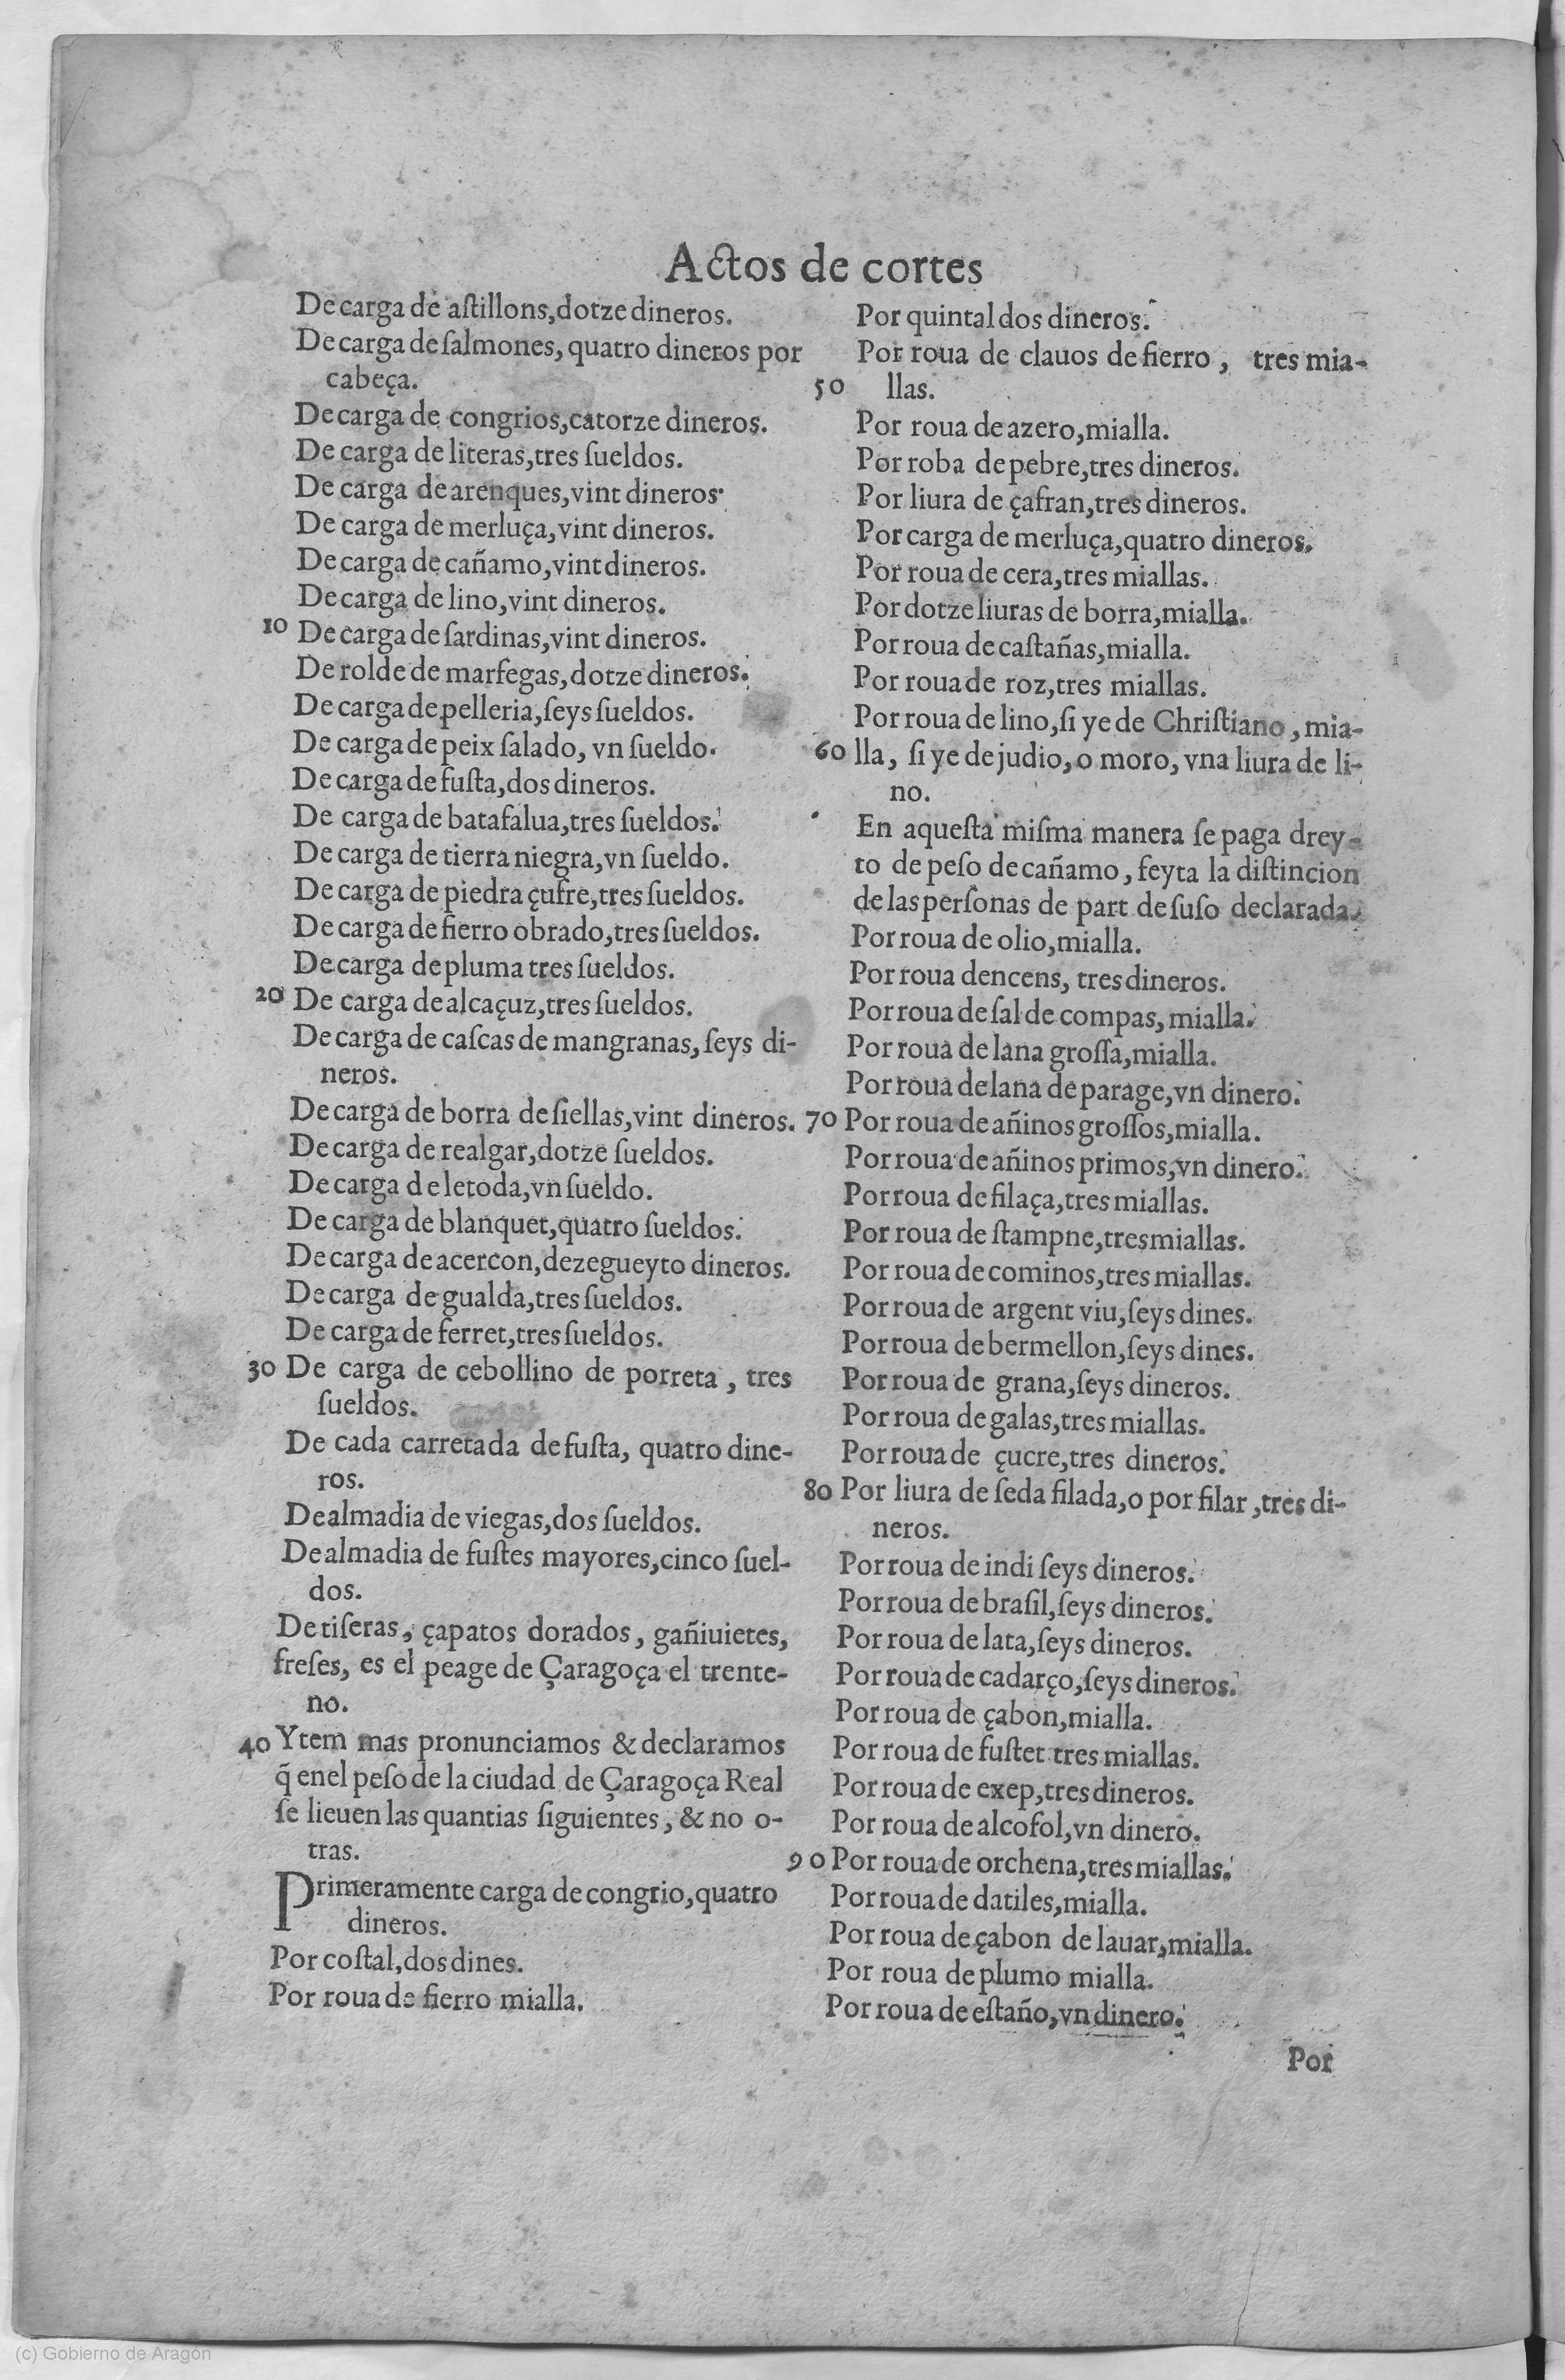 Actos de cortes
De carga de aſtillons, dotze dineros.
De carga de ſalmones, quatro dineros por
cabeça.
De carga de congrios, catorze dineros.
De carga de literas, tres ſueldos.
De carga de arenques, vint dineros.
De carga de merluça, vint dineros.
De carga de cañamo, vint dineros.
De carga de lino, vint dineros.
10 De carga de ſardinas, vint dineros.
De rolde de marfegas, dotze dineros.
De carga de pelleria, ſeys ſueldos.
De carga de peix ſalado, vn ſueldo.
De carga de fuſta, dos dineros.
De carga de batafalua, tres ſueldos.
De carga de tierra niegra, vn ſueldo.
De carga de piedra çufre, tres ſueldos.
De carga de fierro obrado, tres ſueldos.
De carga de pluma tres ſueldos.
20 De carga de alcaçuz, tres ſueldos.
De carga de caſcas de mangranas, ſeys di-
neros.
De carga de borra de ſiellas, vint dineros.
De carga de realgar, dotze ſueldos.
De carga de letoda, vn ſueldo.
De carga de blanquet, quatro ſueldos.
De carga de acercon, dezegueyto dineros.
De carga de gualda, tres ſueldos.
De carga de ferret, tres ſueldos.
30 De carga de cebollino de porreta, tres
ſueldos.
De cada carretada de fuſta, quatro dine-
ros.
De almadia de viegas, dos ſueldos.
De almadia de fuſtes mayores, cinco ſuel-
dos.
De tiſeras, çapatos dorados, gañiuietes,
freſes, es el peage de Çaragoça el trente-
no.
40 Ytem mas pronunciamos & declaramos
q̃ enel peſo de la ciudad de Çaragoça Real
ſe lieuen las quantias ſiguientes, & no o-
tras.
Primeramente carga de congrio, quatro
dineros.
Por coſtal, dos dines.
Por roua de fierro mialla.
Por quintal dos dineros.
Por roua de clauos de fierro, tres mia-
50 llas.
Por roua de azero, mialla.
Por roba de pebre, tres dineros.
Por liura de çafran, tres dineros.
Por carga de merluça, quatro dineros.
Por roua de cera, tres miallas.
Por dotze liuras de borra, mialla.
Por roua de caſtañas, mialla.
Por roua de roz, tres miallas.
Por roua de lino, ſi ye de Chriſtiano, mia-
60 lla, ſi ye de judio, o moro, vna liura de li-
no.
En aqueſta miſma manera ſe paga drey-
to de peſo de cañamo, feyta la diſtincion
de las perſonas de part de ſuſo declarada.
Por roua de olio, mialla.
Por roua dencens, tres dineros.
Por roua de ſal de compas, mialla.
Por roua de lana groſſa, mialla.
Por roua de lana de parage, vn dinero.
70 Por roua de añinos groſſos, mialla.
Por roua de añinos primos, vn dinero.
Por roua de filaça, tres miallas.
Por roua de ſtampne, tres miallas.
Por roua de cominos, tres miallas.
Por roua de argent viu, ſeys dines.
Por roua de bermellon, ſeys dines.
Por roua de grana, ſeys dineros.
Por roua de galas, tres miallas.
Por roua de çucre, tres dineros.
80 Por liura de ſeda filada, o por filar, tres di-
neros.
Por roua de indi ſeys dineros.
Por roua de braſil, ſeys dineros.
Por roua de lata, ſeys dineros.
Por roua de cadarço, ſeys dineros.
Por roua de çabon, mialla.
Por roua de fuſtet tres miallas.
Por roua de exep, tres dineros.
Por roua de alcofol, vn dinero.
90 Por roua de orchena, tres miallas.
Por roua de datiles, mialla.
Por roua de çabon de lauar, mialla.
Por roua de plumo mialla.
Por roua de eſtaño, vn dinero.
Por
(c) Gobierno de Aragón